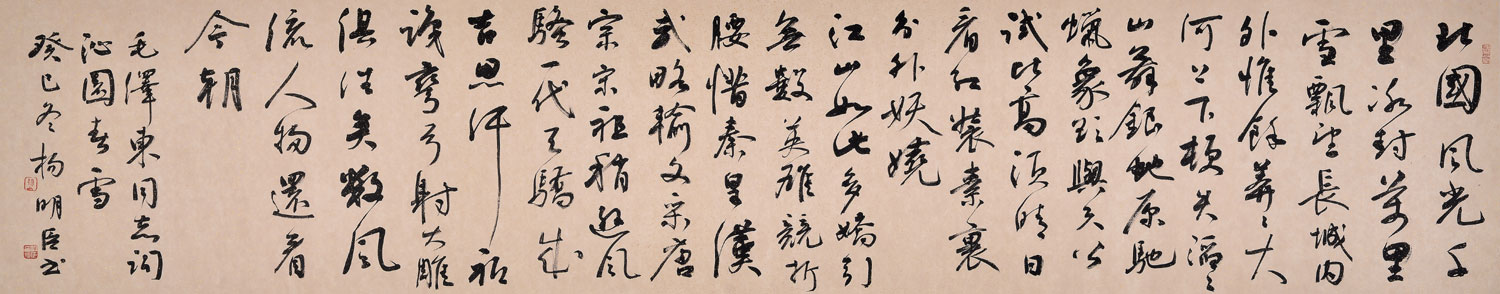 北國風光千
里冰封萬里
雪飄望長城内
外惟餘莽〻大
河上下頓失滔〻
山舞銀蛇原馳
蠟象欲與天公
試比高須晴日
看紅裝素裹
分外妖嬈
江山如此多嬌引
無數英雄競折
腰惜秦皇漢
武略輸文采唐
宗宋祖稍遜風
騷一代天驕成
吉思汗祇
識彎弓射大雕
俱往矣數風
流人物還看
今朝
毛澤東同志詞
沁園春雪
癸巳冬楊明臣书